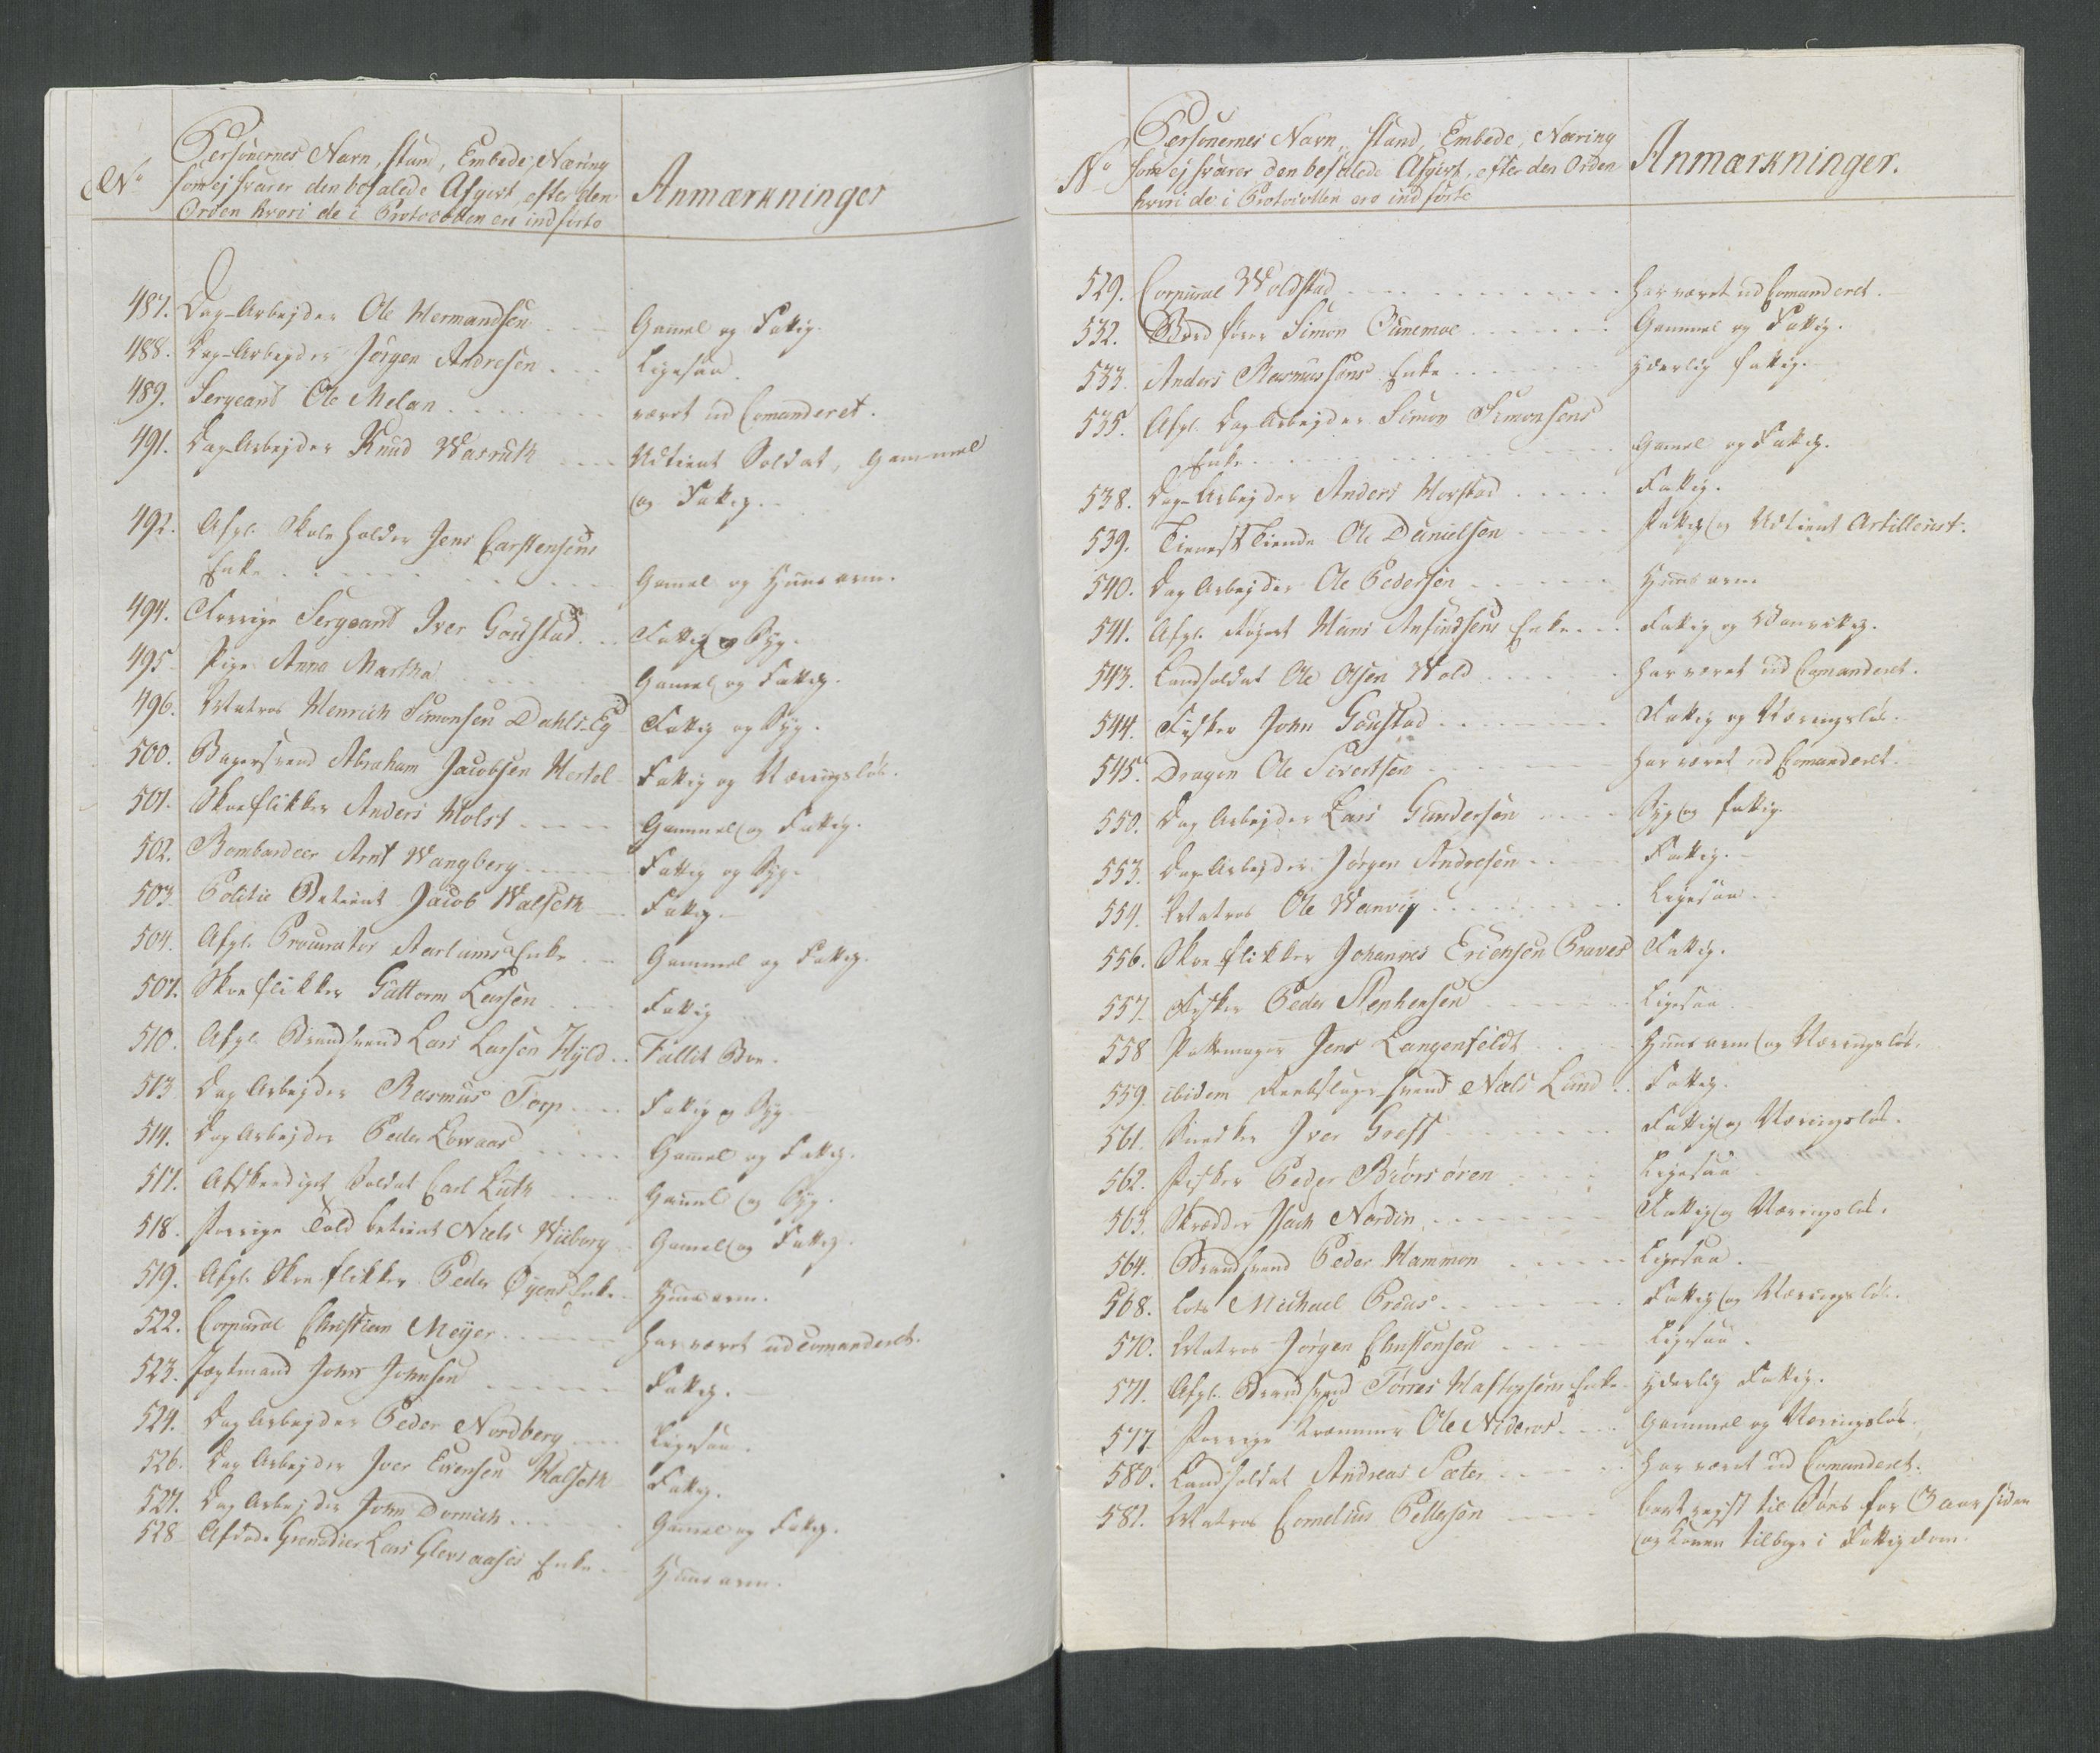 No
Personernes Navn, stand, Embede, Næring
som ej svarer den befalede Afgivt, efter den
Orden hvori de i Protocollen ere indførte
Anmærkninger
487. Dag-Arbejder Ole Hermandsen Gamel og Fattig.
488. Dag-Arbejder Jørgen Andresen Ligesaa.
489. Sergeant Ole Melan været ud Comanderet.
491. Dag-Arbejder Knud Wasruth Udtient Soldat, Gammel
og Fattig.
492. Afgl. Skoleholder Jens Carstensens
Enke Gamel og Huusarm.
494. Forrige Sergeant Iver Goustad Fattig og Syg.
495 Pige Anna Martha Gamel og Fattig.
496. Matros Henrich Simonsen Dahls-Eg Fattig og Syg.
500. Bagersvend Abraham Jacobsen Hertel Fattig og Næringsløs.
501. Skoeflikker Anders Holst Gammel og Fattig.
502. Bombardeer Arnt Wangberg Fattig og Syg.
503. Politie Betient Jacob Walseth Fattig.
504. Afgl. Procurator Aarlums Enke Gammel og Fattig.
507. Skoeflikker Gattorm Larsen Fattig
510. Afgl. Brandsvend Lars Larsen Hyld Fallit Boe.
513 Dag Arbejder Rasmus Torp Fattig og Syg
514. Dag Arbejder Peder Lovaas Gamel og Fattig.
517. Afskediget Soldat Carl Luth Gamel og Syg.
518. Forrige Told betient Niels Wiborg Gamel og Fattig.
519. Afgl. Skoeflikker Peder Øyens Enke Huusarm.
522. Corporal Christian Meyer har været udcomanderet.
523. Jægtmand John Johnsen Fattig.
524. Dag Arbejder Peder Nordberg Ligesaa.
526. Dag Arbejder Iver Evensen Halseth Fattig.
527. Dag Arbejder John Dornich Gamel og Fattig.
528 Afdøde Grenadier Lars Glersaases Enke Huusarm.
No
Personernes Navn, stand, Embede, Næring
som ej svarer den befalede Afgivt, efter den Orden
hvori de i Protocollen ere indførte
Anmærkninger.
529. Corporal Woldstad har været ud Comanderet.
532. Bordfører Simon Gammel og Fattig.
533. Anders Rasmussens Enke Yderlig fattig.
535. Afgl. Dag-Arbejder Simon Simonsens
Enke Gamel og Fattig.
538. Dag-Arbejder Anders Horstad Fattig.
539. Tienestiende Ole Danielsen Fattig og Udtient Artillerist.
540. Dag Arbejder Ole Pedersen Huusarm
541. Afgl. Hans Anfindsens Enke Fattig og
543. Landsoldat Ole Olsen Wold har været ud Comanderet.
544. Fisker John Goustad Fattig og Næringsløs.
545. Dragon Ole Sivertsen har været ud Comanderet.
550. Dag Arbejder Lars Gundersen Syg og fattig.
553. Dag Arbejder Jørgen Andresen Fattig.
559. Matros Ole Wanvig Ligesaa
556. Skoeflikker Johannes Erichsen Graves Fattig.
557. Fisker Peder Stephensen Ligesaa
558 Jens Langenfeldt Huusarm og Næringsløs.
559. ibidem Reebslagersvend Niels Lund Fattig.
561. Snedker Iver Greft Fattig og Næringsløs.
562. Fisker Peder Biørsøren Ligesaa
563. Skrædder Isach Nordin Fattig og Næringsløs.
564. Brandsvend Peder Hammon Ligesaa.
568. Lods Michael Brous Fattig og Næringsløs.
570. Matros Jørgen Christensen Ligesaa.
571. Afgl. Brandsvend Tørres Enke Yderlig Fattig.
577 Forrige Kræmmer Ole Nideros Gammel og Næringsløs
580. Landsoldat Andreas Sæter har været ud Comanderet.
581. Matros Cornelius Pettersen bortrejst til Søes for 3 aar siden
og Konen tilbage i Fattigdom.